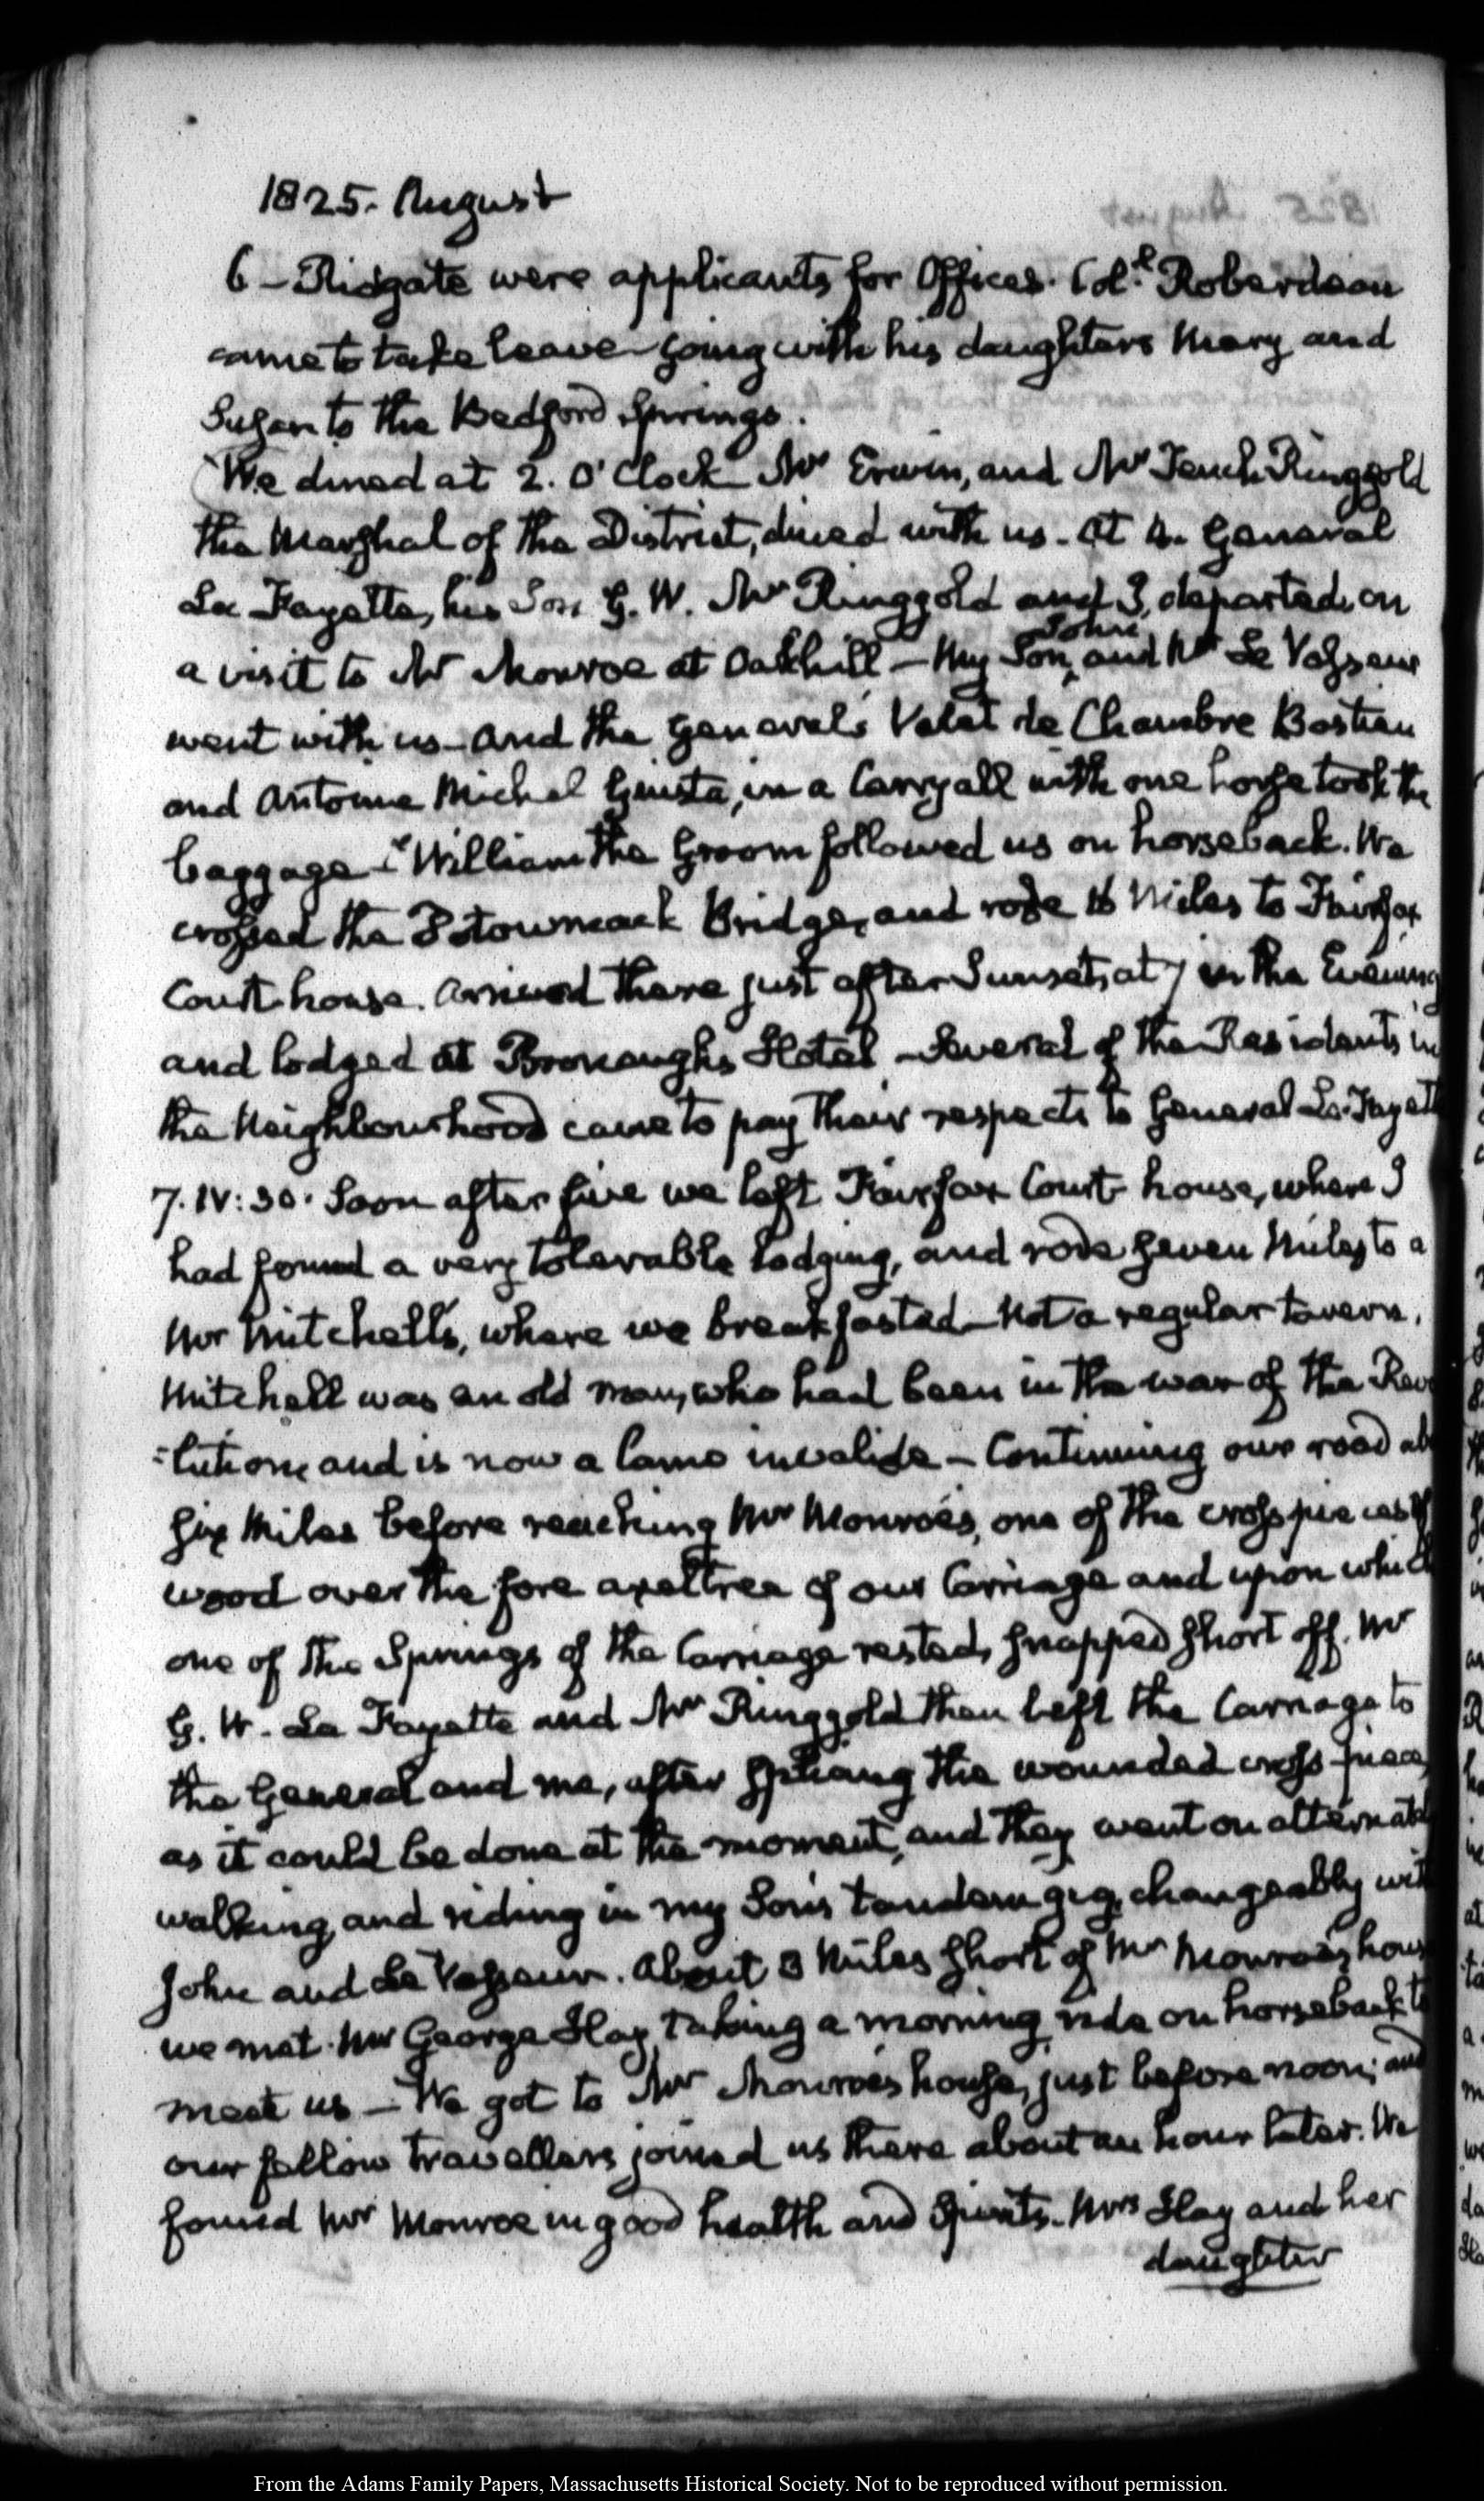 1825. August
6 – Ridgate were applicants for Offices. Coll. Roberdeau
came to take leave going with his daughters Mary and
Susan to the Bedford Springs.
We dined at 2. O'Clock Mr Erwin, and Mr Tench Ringgold
the Marshal of the District, dined with us. At 4. General
La Fayette, his Son G. W. Mr Ringgold and I, departed, on
a visit to Mr Monroe at Oakhill – My Son John, and Mr Le Vasseur
went with us – and the General's Valet de Chambre Bastien
and Antoine Michel Giusta, in a Carryall with one horse took the
baggage – William the Groom followed us on horseback. We
crossed the Potowmack Bridge, and rode 16 Miles to Fairfax
Court-house. Arrived there just after Sunset, at 7 in the Evening
and lodged at Bronaugh's Hotel – Several of the Residents in
the Neighbourhood came to pay their respects to General La Fayett
7. IV: 30. Soon after five we left Fairfax Court house, where I
had found a very tolerable lodging, and rode seven Miles to a
Mr Mitchell's, where we breakfasted – Not a regular tavern.
Mitchell was an old man, who had been in the war of the Rev
-lution, and is now a lame invalide – Continuing our road ab
six Miles before reaching Mr Monroe's, one of the cross pieces of
wood over the fore axeltree of our Carriage and upon which
one of the Springs of the Carriage rested, snapped short off. Mr
G. W. La Fayette and Mr Ringgold then left the Carriage to
the General and me, after splicing the wounded cross-piece,
as it could be done at the moment, and they went on alternate
walking, and riding in my Son's tandem gig, changeably wit
John and Le Vasseur. About 3 Miles short of Mr Monroe's hous
we met Mr George Hay, taking a morning ride on horseback to
meet us – We got to Mr Monroe's house, just before noon; and
our fellow travellers joined us there about an hour later. We
found Mr Monroe in good health and Spirits. Mrs Hay and her
daughter
From the Adams Family Papers, Massachusetts Historical Society. Not to be reproduced without permission.